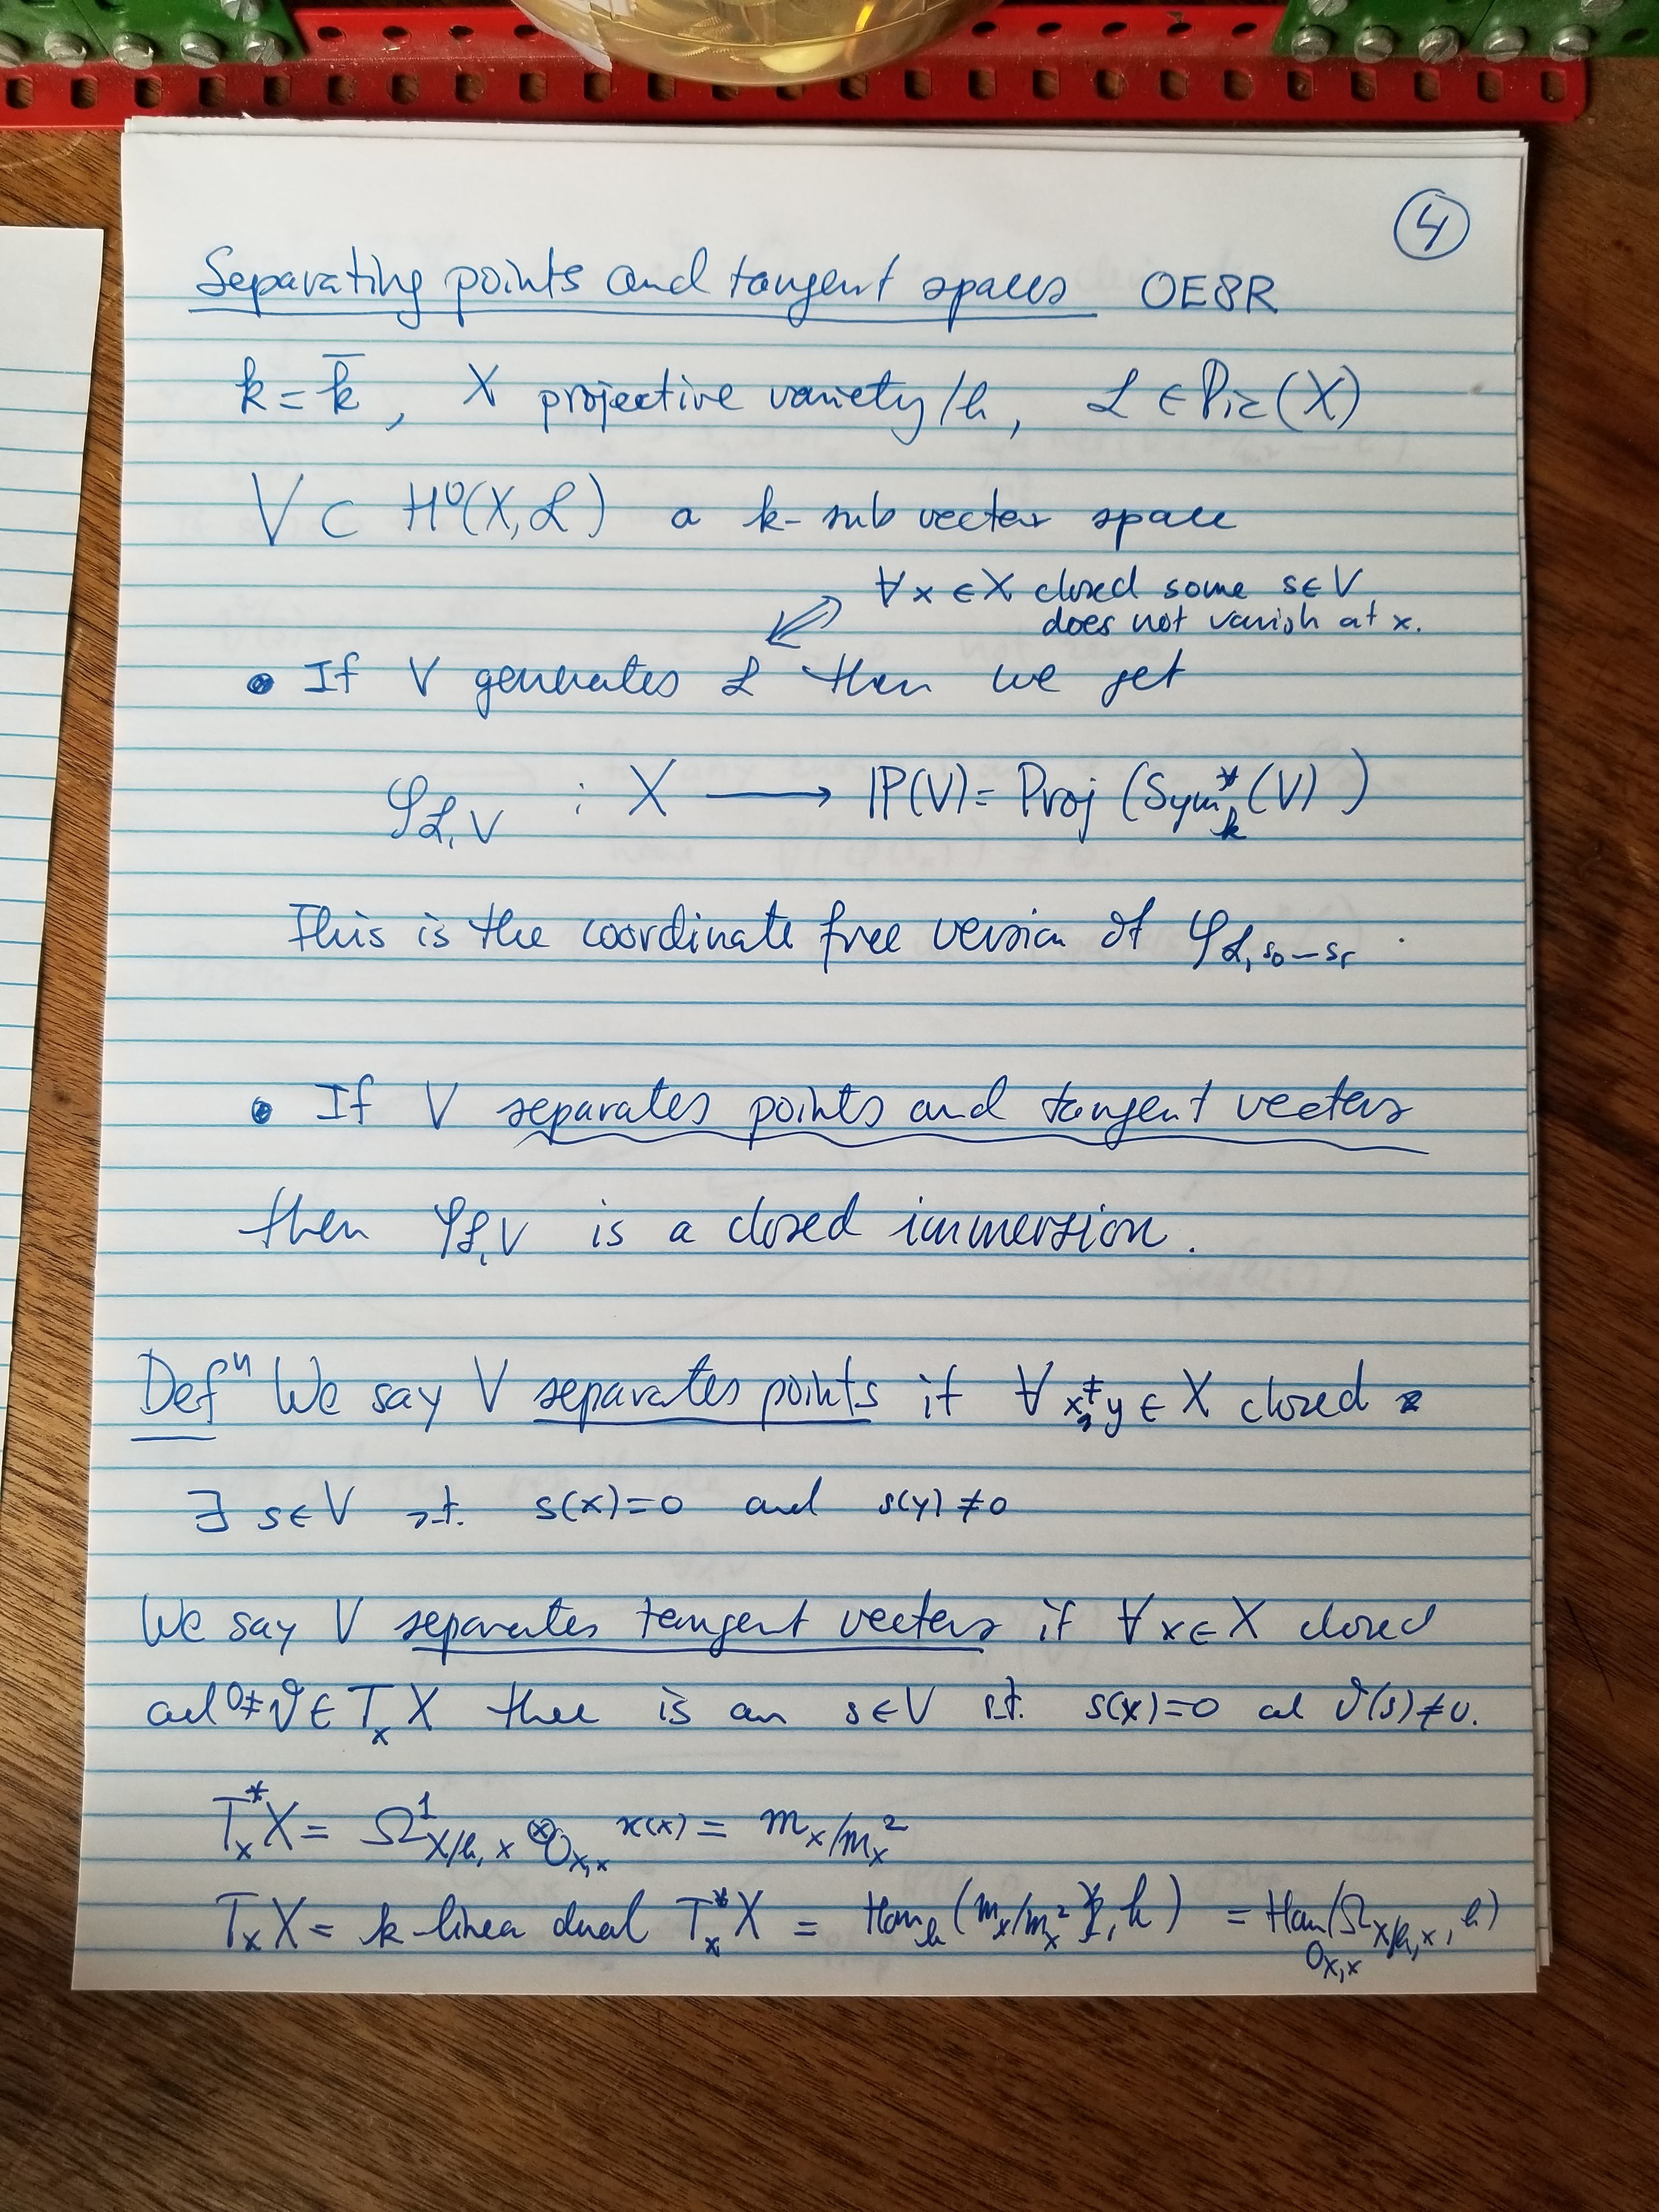 4
Separating points and tangent spaces 0E8R
k = k̄, X projective variety/k, ℒ ∈ Pic(X)
V ⊂ H⁰(X,ℒ) a k-sub vector space
∀ x ∈ X closed some s ∈ V
does not vanish at x.
• If V generates ℒ then we get
φ_{ℒ,V} : X ⟶ ℙ(V) = Proj (Sym*_k (V))
This is the coordinate free version of φ_{ℒ, s₀ — s_r}.
• If V separates points and tangent vectors
then φ_{ℒ,V} is a closed immersion.
Defⁿ We say V separates points if ∀ x ≠ y ∈ X closed
∃ s ∈ V s.t. s(x)=0 and s(y)≠0
We say V separates tangent vectors if ∀ x ∈ X closed
and 0≠ϑ ∈ T_x X there is an s ∈ V s.t. s(x)=0 and ϑ(s)≠0.
T*_x X = Ω¹_{X/k, x} ⊗_{O_{X,x}} κ(x) = m_x/m_x²
T_x X = k-linear dual T*_x X = Hom_k (m_x/m_x², k) = Hom_{O_{X,x}}(Ω_{X/k,x}, k)